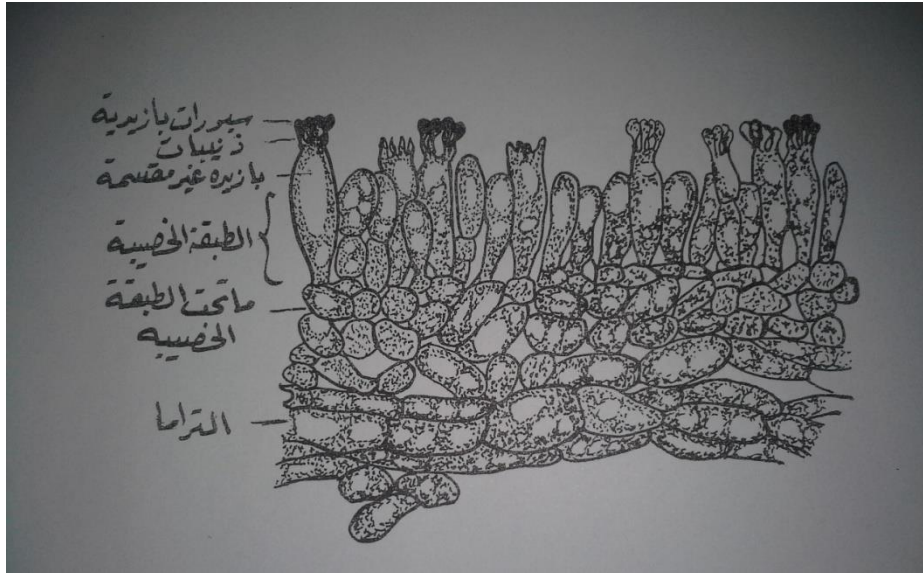 سبورات بازيدية
ذنيبات
بازيده غير مقسمة
الطبقة الخصيبة
ماتحت الطبقة
الخصيبه
التراما